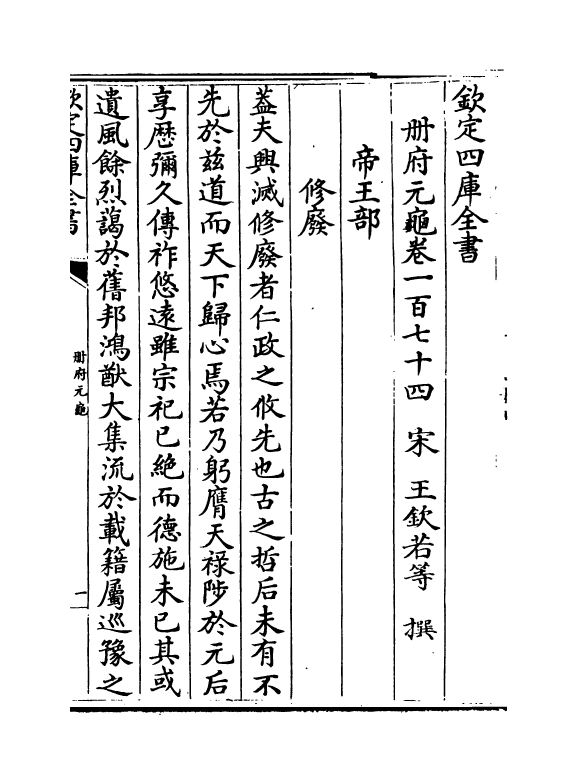 欽定四庫全書
册府元龜卷一百七十四　宋　王欽若等　撰
帝王部
修廢
蓋夫興滅修廢者仁政之攸先也古之哲后未有不
先於兹道而天下歸心焉若乃躬膺天禄陟於元后
享歷彌久傳祚悠遠雖宗祀已絶而德施未已其或
遺風餘烈藹於舊邦鴻猷大集流於載籍屬巡豫之
欽定四庫全書
册府元龜